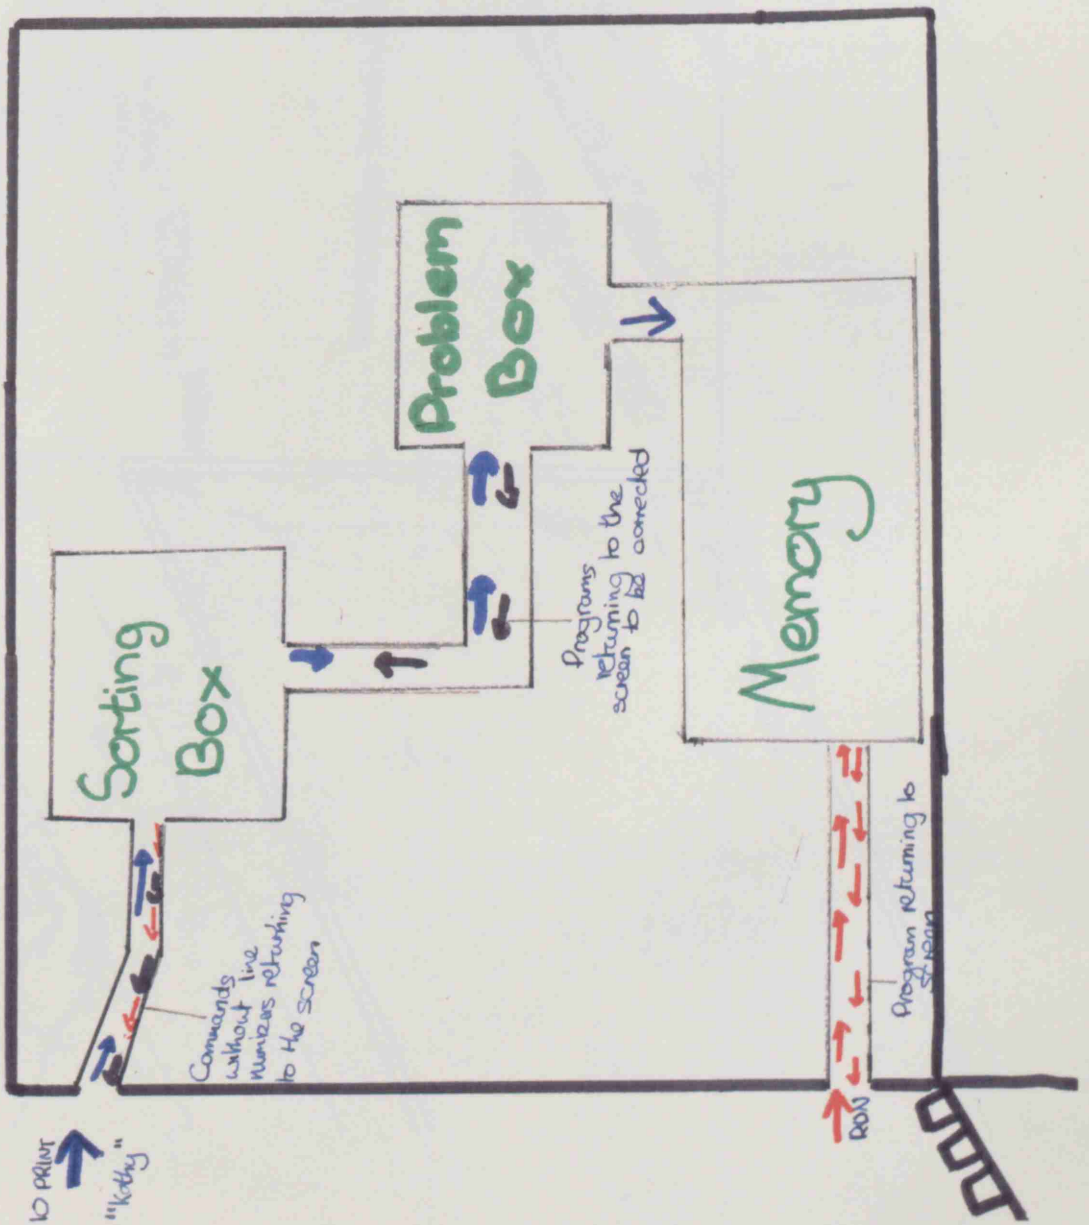 10 PRINT
"Kathy"
Sorting
Box
Commands
without line
numbers returning
to the screen
Problem
Box
Programs
returning to the
screen to be corrected
Memory
RUN
Program returning to
screen